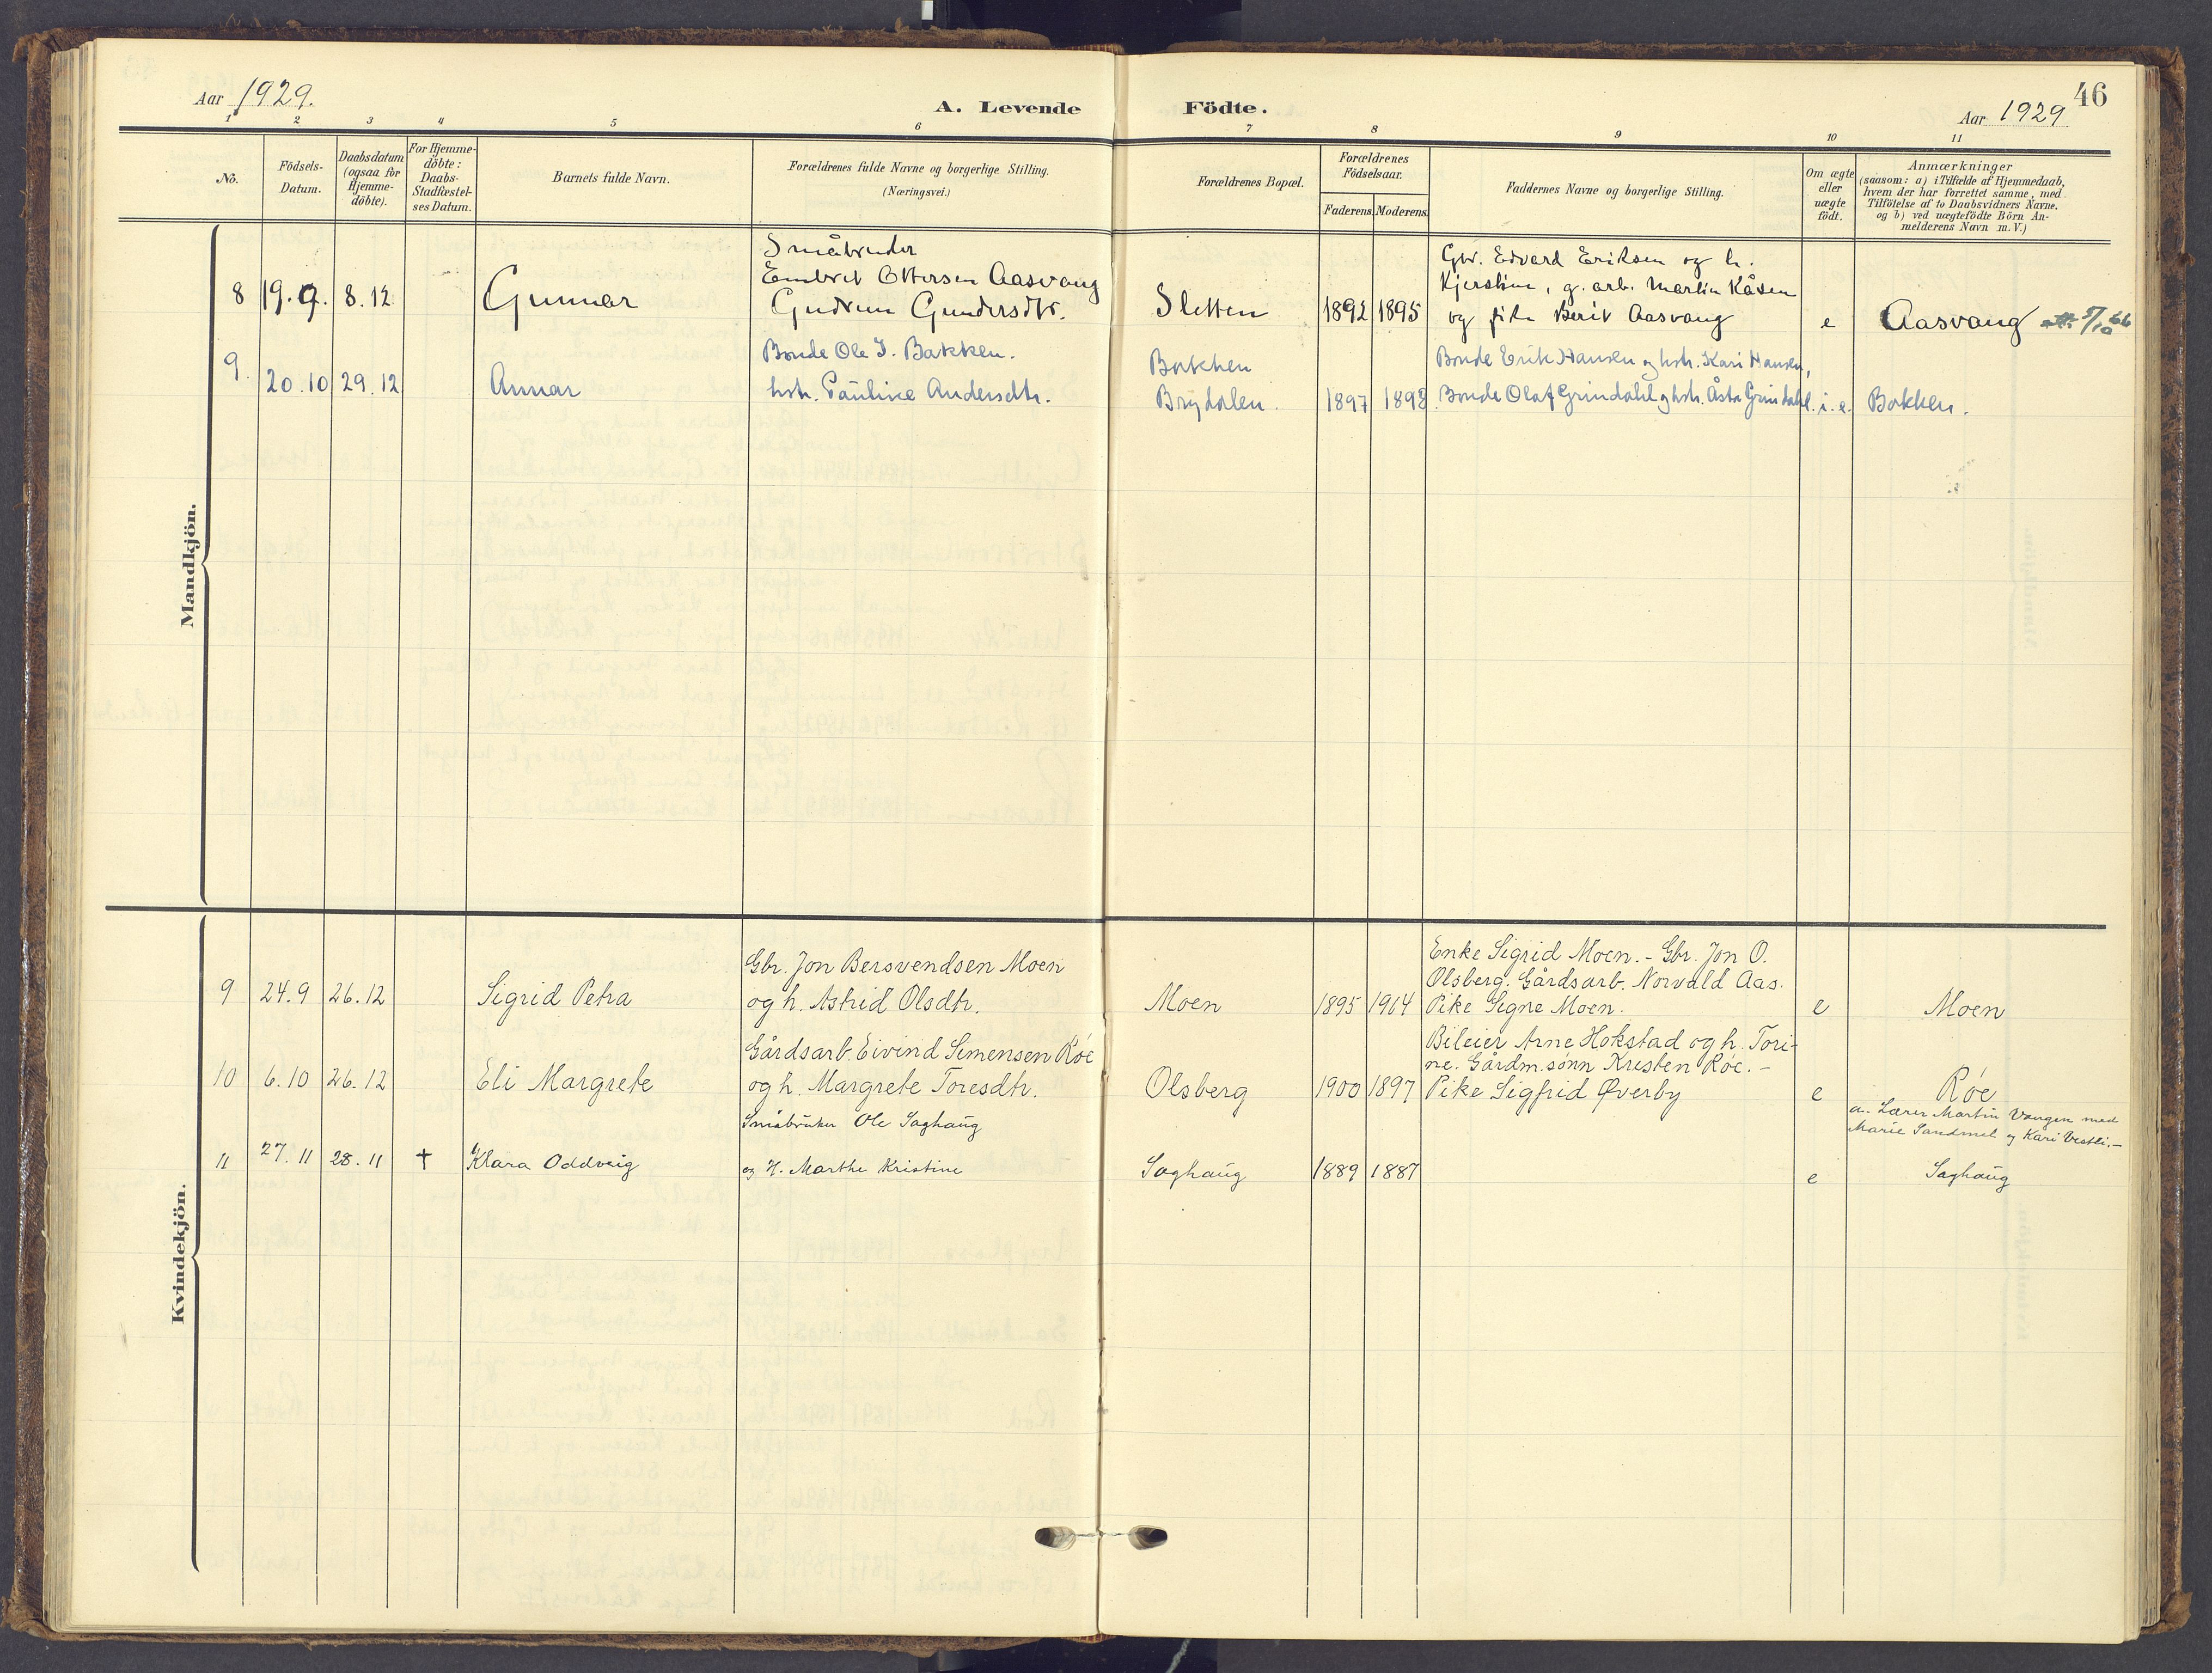 46
Aar 1929.
A. Levende Födte.
Aar 1929
1 2 3 4 5 6 7 8 9 10 11
No.
Födsels-
Datum.
Daabsdatum
(ogsaa for
Hjemme-
döbte).
For Hjemme-
döbte:
Daabs-
Stadfæstel-
ses Datum.
Barnets fulde Navn.
Forældrenes fulde Navne og borgerlige Stilling.
(Næringsvei.)
Forældrenes Bopæl.
Forældrenes
Födselsaar.
Faderens. Moderens.
Faddernes Navne og borgerlige Stilling.
Om ægte
eller
uægte
födt.
Anmærkninger
(saasom: a) i Tilfælde af Hjemmedaab,
hvem der har forrettet samme, med
Tilföielse af to Daabsvidners Navne.
og b) ved uægtefödte Börn An-
melderens Navn m. V.)
Mandkjön.
Småbruker
Embret Ottersen Aasvang
8 19.9. 8.12 Gunnar Gudrun Gundersdtr. Sletten 1892 1895
Gbr. Edvard Eriksen og h.
Kjerstine, g. arb. Martin Kåsen
og pike Berit Aasvang e Aasvang 5/10 66
9. 20.10 29.12 Annar
Bonde Ole J. Bakken.
hstr. Pauline Andersdtr.
Bakken
Brydalen. 1897 1898
Bonde Erik Hansen og hstr. Kari Hansen,
Bonde Olaf Grindahl og hstr. Åsta Grindahl. i. e. Bakken.
Kvindekjön.
9 24.9 26.12 Sigrid Petra
Gbr. Jon Bersvendsen Moen
og h. Astrid Olsdtr. Moen 1895 1904
Enke Sigrid Moen. - Gbr. Jon O.
Olsberg. Gårdsarb. Norvald Aas.
Pike Signe Moen. e Moen
10 6.10 26.12 Eli Margrete
Gårdsarb. Eivind Simensen Røe
og h. Margrete Toresdtr. Olsberg 1900 1897
Bileier Arne Hokstad og h. Tori-
ne. Gårdm.sønn Kristen Røe. -
Pike Sigfrid Øverby e Røe
11 27.11 28.11 † Klara Oddveig
Småbruker Ole Saghaug
og H. Marthe Kristine Saghaug 1889 1887 e
a. Lærer Martin Vangen med
Marie Sandmel og Kari Vestli. -
Saghaug